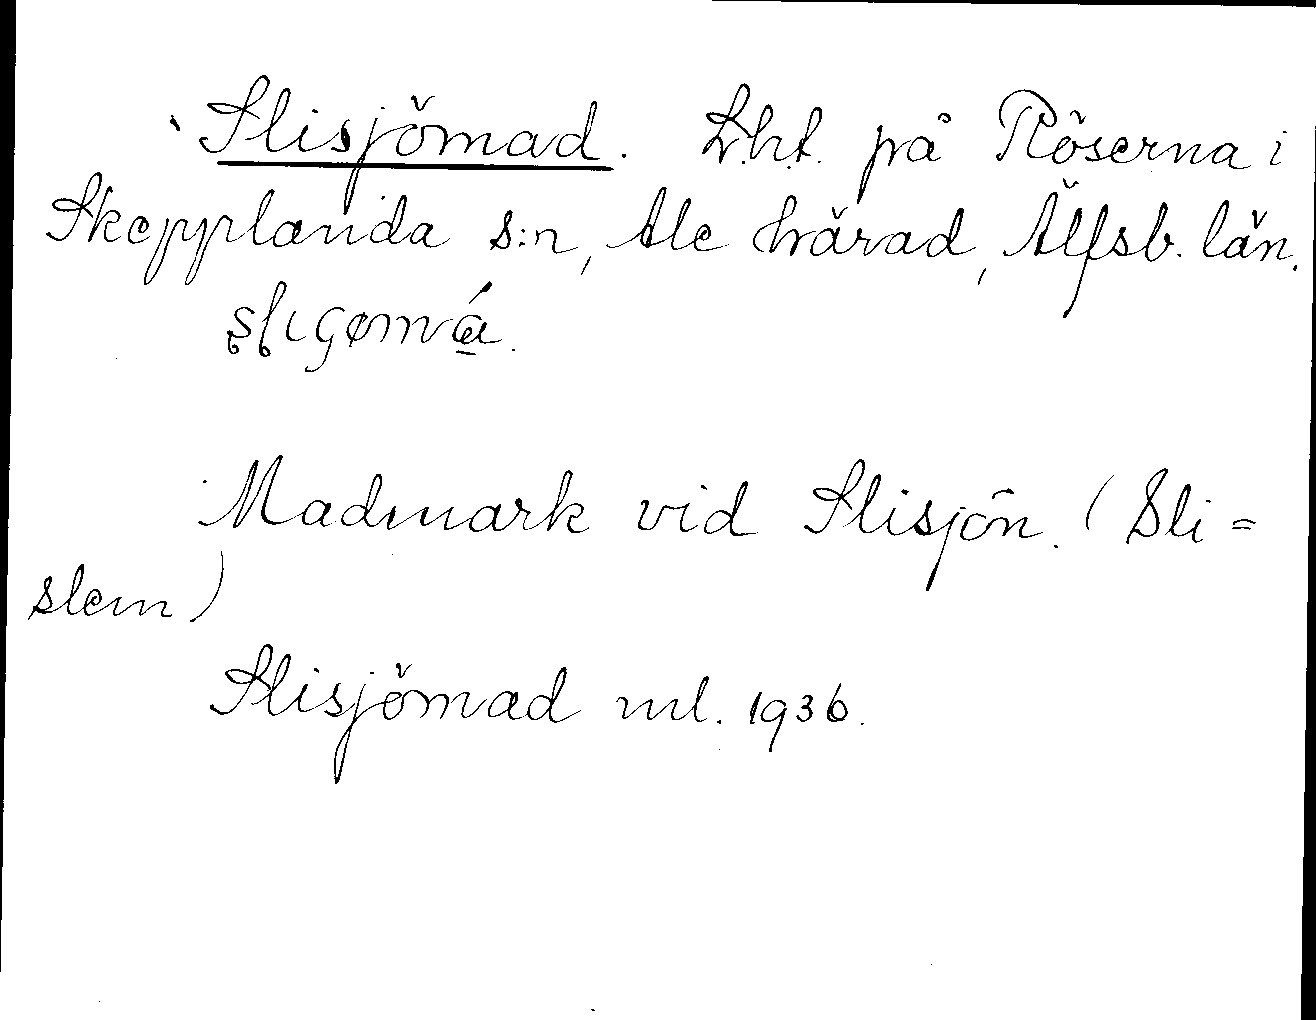 Slisjömad. Lht. på Röserna i
Skepplanda s:n, Ale härad, Älfsb. län.
Madmark vid Slisjön. (Sli =
slem)
Slisjömad ml. 1936.